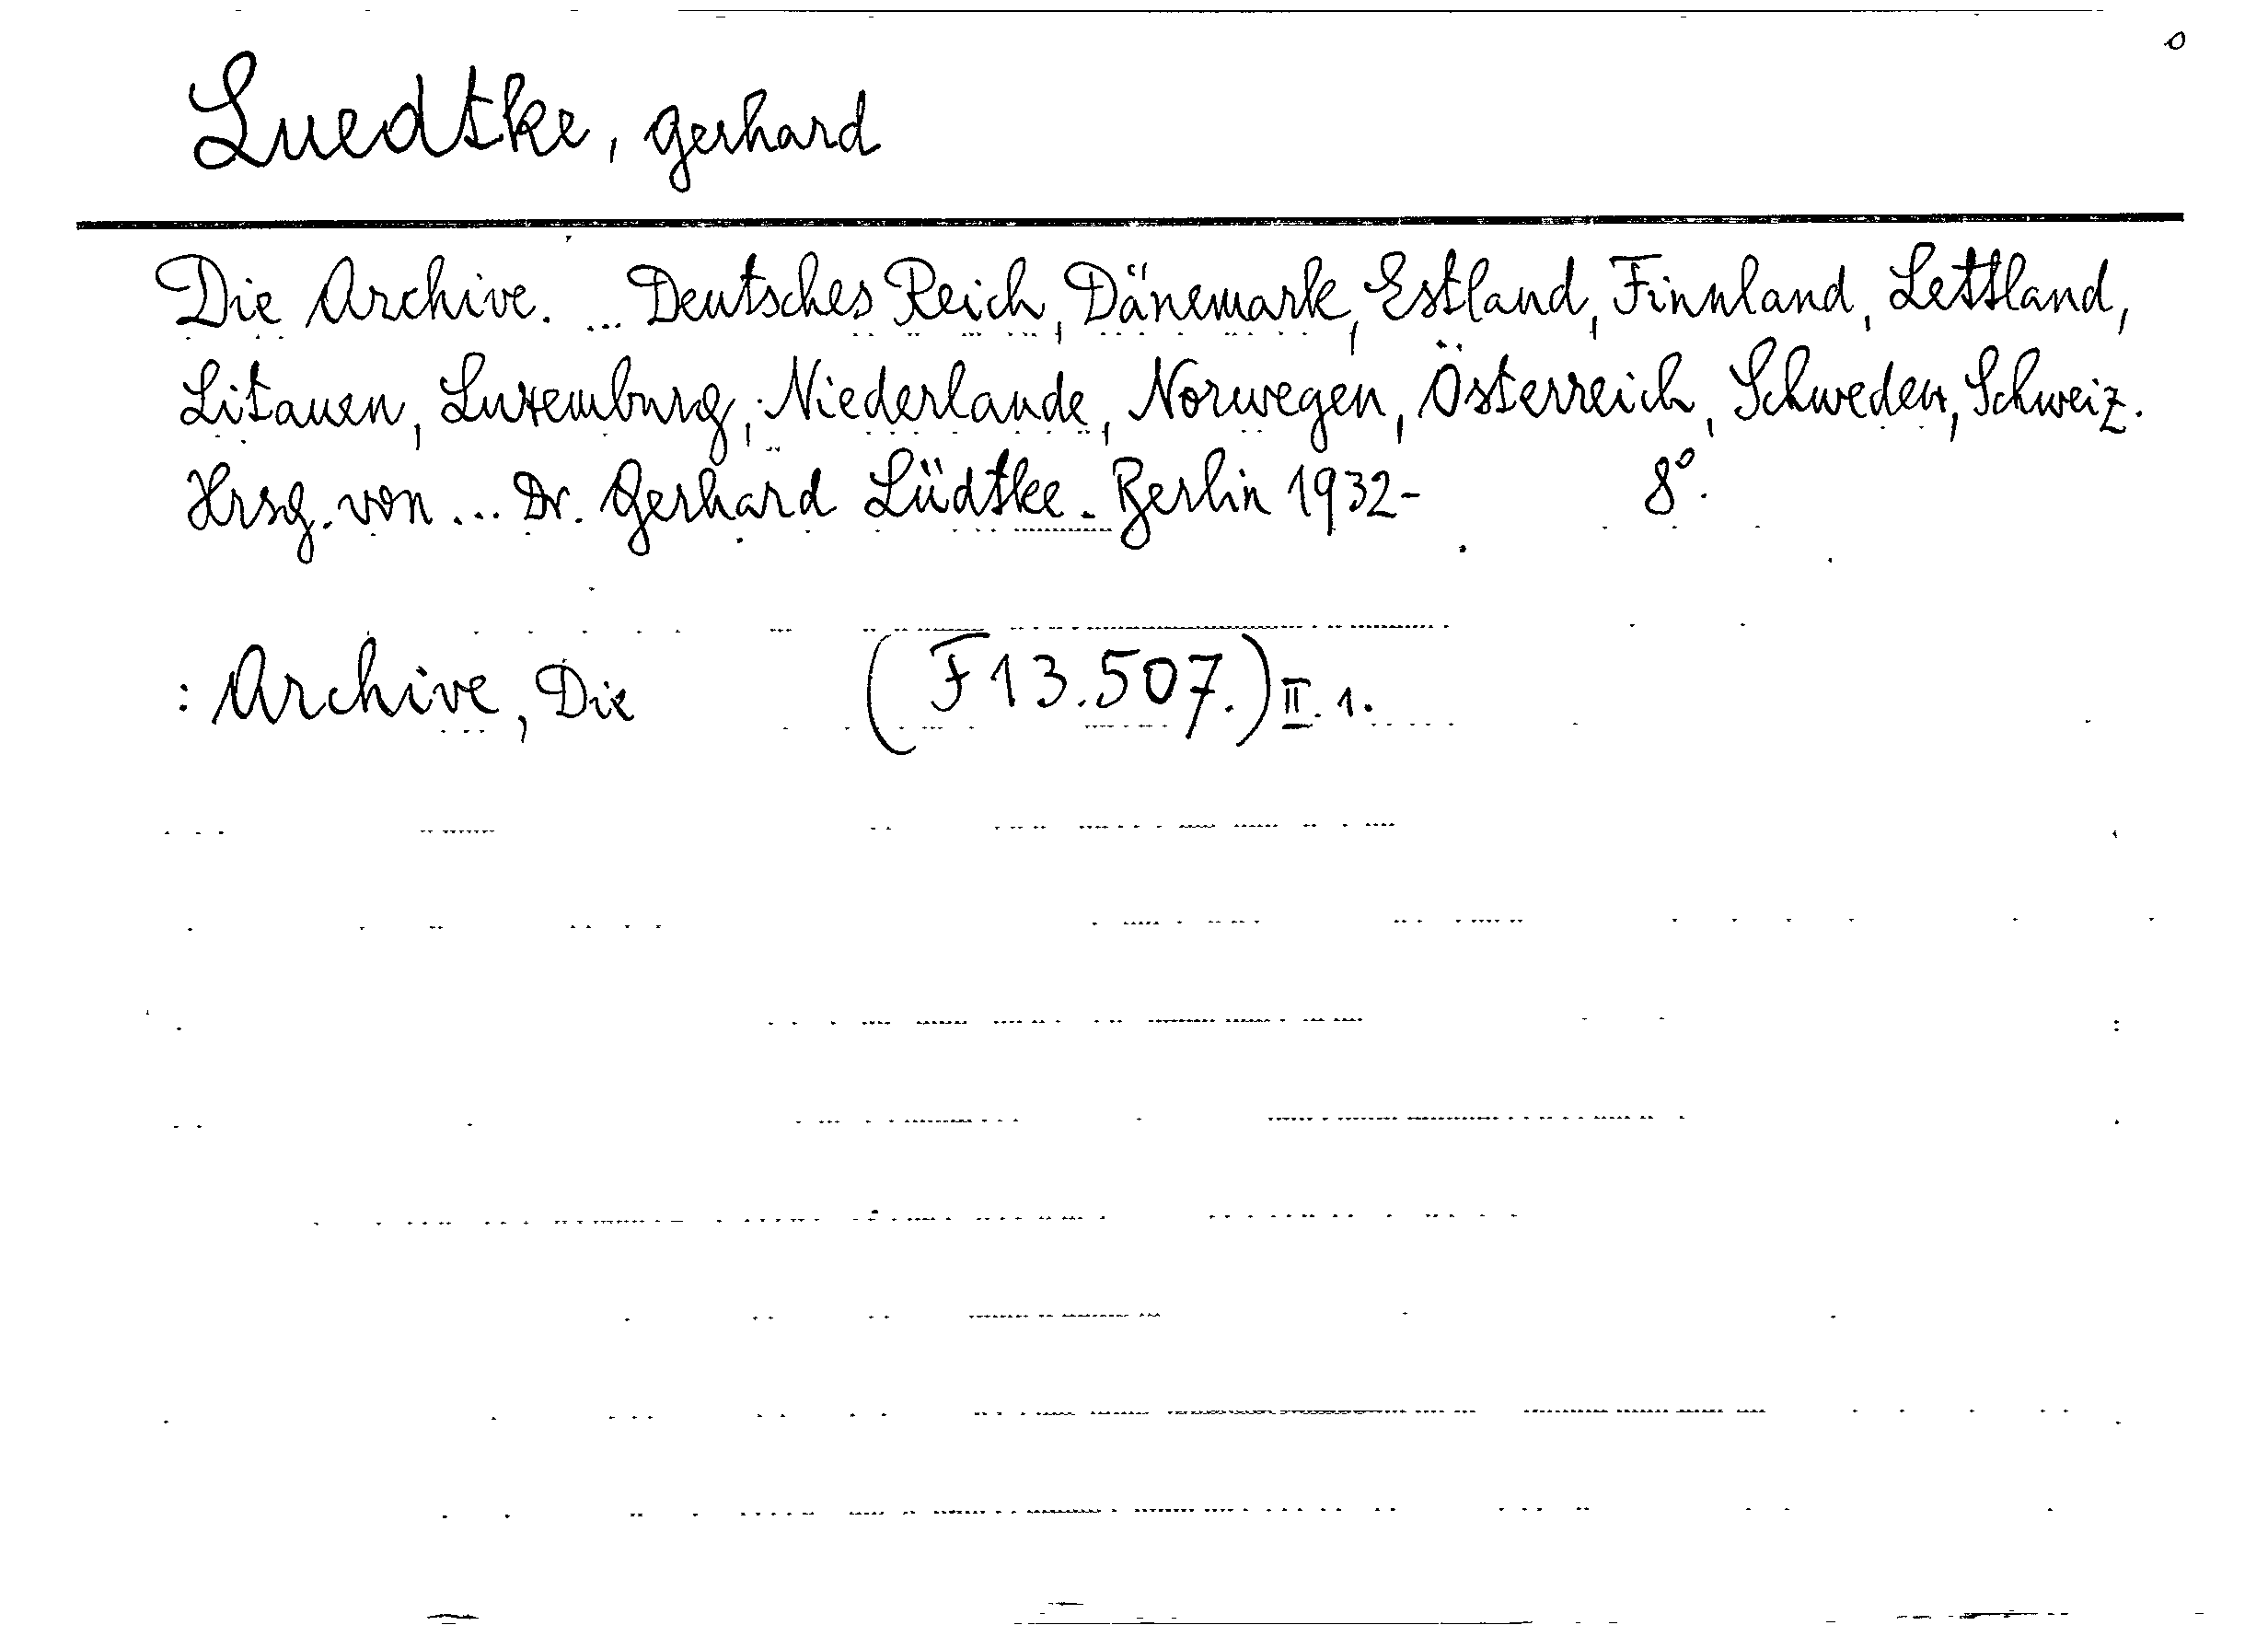 Luedtke, Gerhard
Die Archive. ... Deutsches Reich, Dänemark, Estland, Finnland, Lettland,
Litauen, Luxemburg, Niederlande, Norwegen, Österreich, Schweden, Schweiz.
Hrsg. von ... Dr. Gerhard Lüdtke. Berlin 1932- 8°.
: Archive, Die (F13.507.) II. 1.